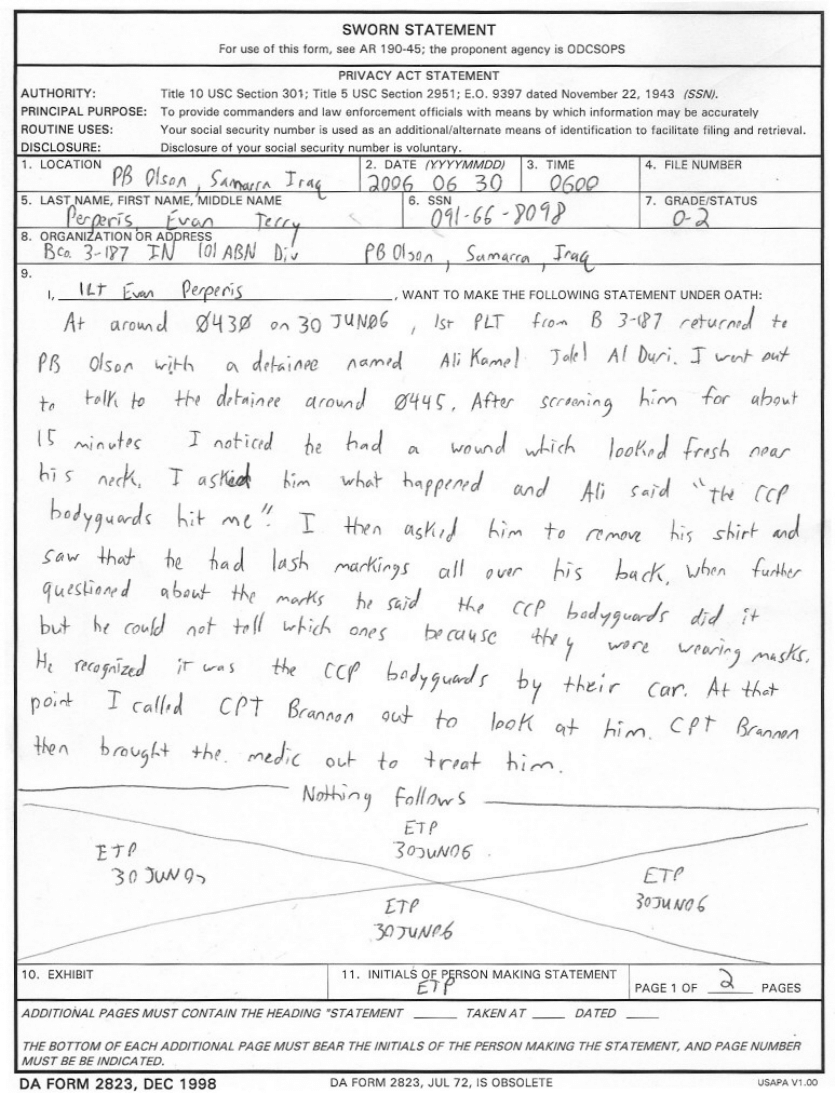 SWORN STATEMENT
For use of this form, see AR 190-45; the proponent agency is ODCSOPS
PRIVACY ACT STATEMENT
AUTHORITY: Title 10 USC Section 301; Title 5 USC Section 2951; E.O. 9397 dated November 22, 1943 (SSN).
PRINCIPAL PURPOSE: To provide commanders and law enforcement officials with means by which information may be accurately
ROUTINE USES: Your social security number is used as an additional/alternate means of identification to facilitate filing and retrieval.
DISCLOSURE: Disclosure of your social security number is voluntary.
1. LOCATION 2. DATE (YYYYMMDD) 3. TIME 4. FILE NUMBER
PB Olson, Samarra Iraq 2006 06 30 0600
5. LAST NAME, FIRST NAME, MIDDLE NAME 6. SSN 7. GRADE/STATUS
Perperis, Evan Terry 091-66-8098 O-2
8. ORGANIZATION OR ADDRESS
Bco. 3-187 IN 101 ABN Div PB Olson, Samarra, Iraq
9.
I, 1LT Evan Perperis, WANT TO MAKE THE FOLLOWING STATEMENT UNDER OATH:
At around Ø430 on 30 JUN06, 1st PLT from B 3-187 returned to
PB Olson with a detainee named Ali Kamel Jalel Al Duri. I went out
to talk to the detainee around Ø445. After screening him for about
15 minutes I noticed he had a wound which looked fresh near
his neck. I asked him what happened and Ali said "the CCP
bodyguards hit me". I then asked him to remove his shirt and
saw that he had lash markings all over his back. When further
questioned about the marks he said the CCP bodyguards did it
but he could not tell which ones because they were wearing masks.
He recognized it was the CCP bodyguards by their car. At that
point I called CPT Brannon out to look at him. CPT Brannon
then brought the. medic out to treat him.
Nothing Follows
ETP
30JUN06
ETP
30 JUN 0
ETP
30JUN06
ETP
30JUN06
10. EXHIBIT 11. INITIALS OF PERSON MAKING STATEMENT
ETP PAGE 1 OF 2 PAGES
ADDITIONAL PAGES MUST CONTAIN THE HEADING "STATEMENT TAKEN AT DATED
THE BOTTOM OF EACH ADDITIONAL PAGE MUST BEAR THE INITIALS OF THE PERSON MAKING THE STATEMENT, AND PAGE NUMBER
MUST BE BE INDICATED.
DA FORM 2823, DEC 1998 DA FORM 2823, JUL 72, IS OBSOLETE USAPA V1.00